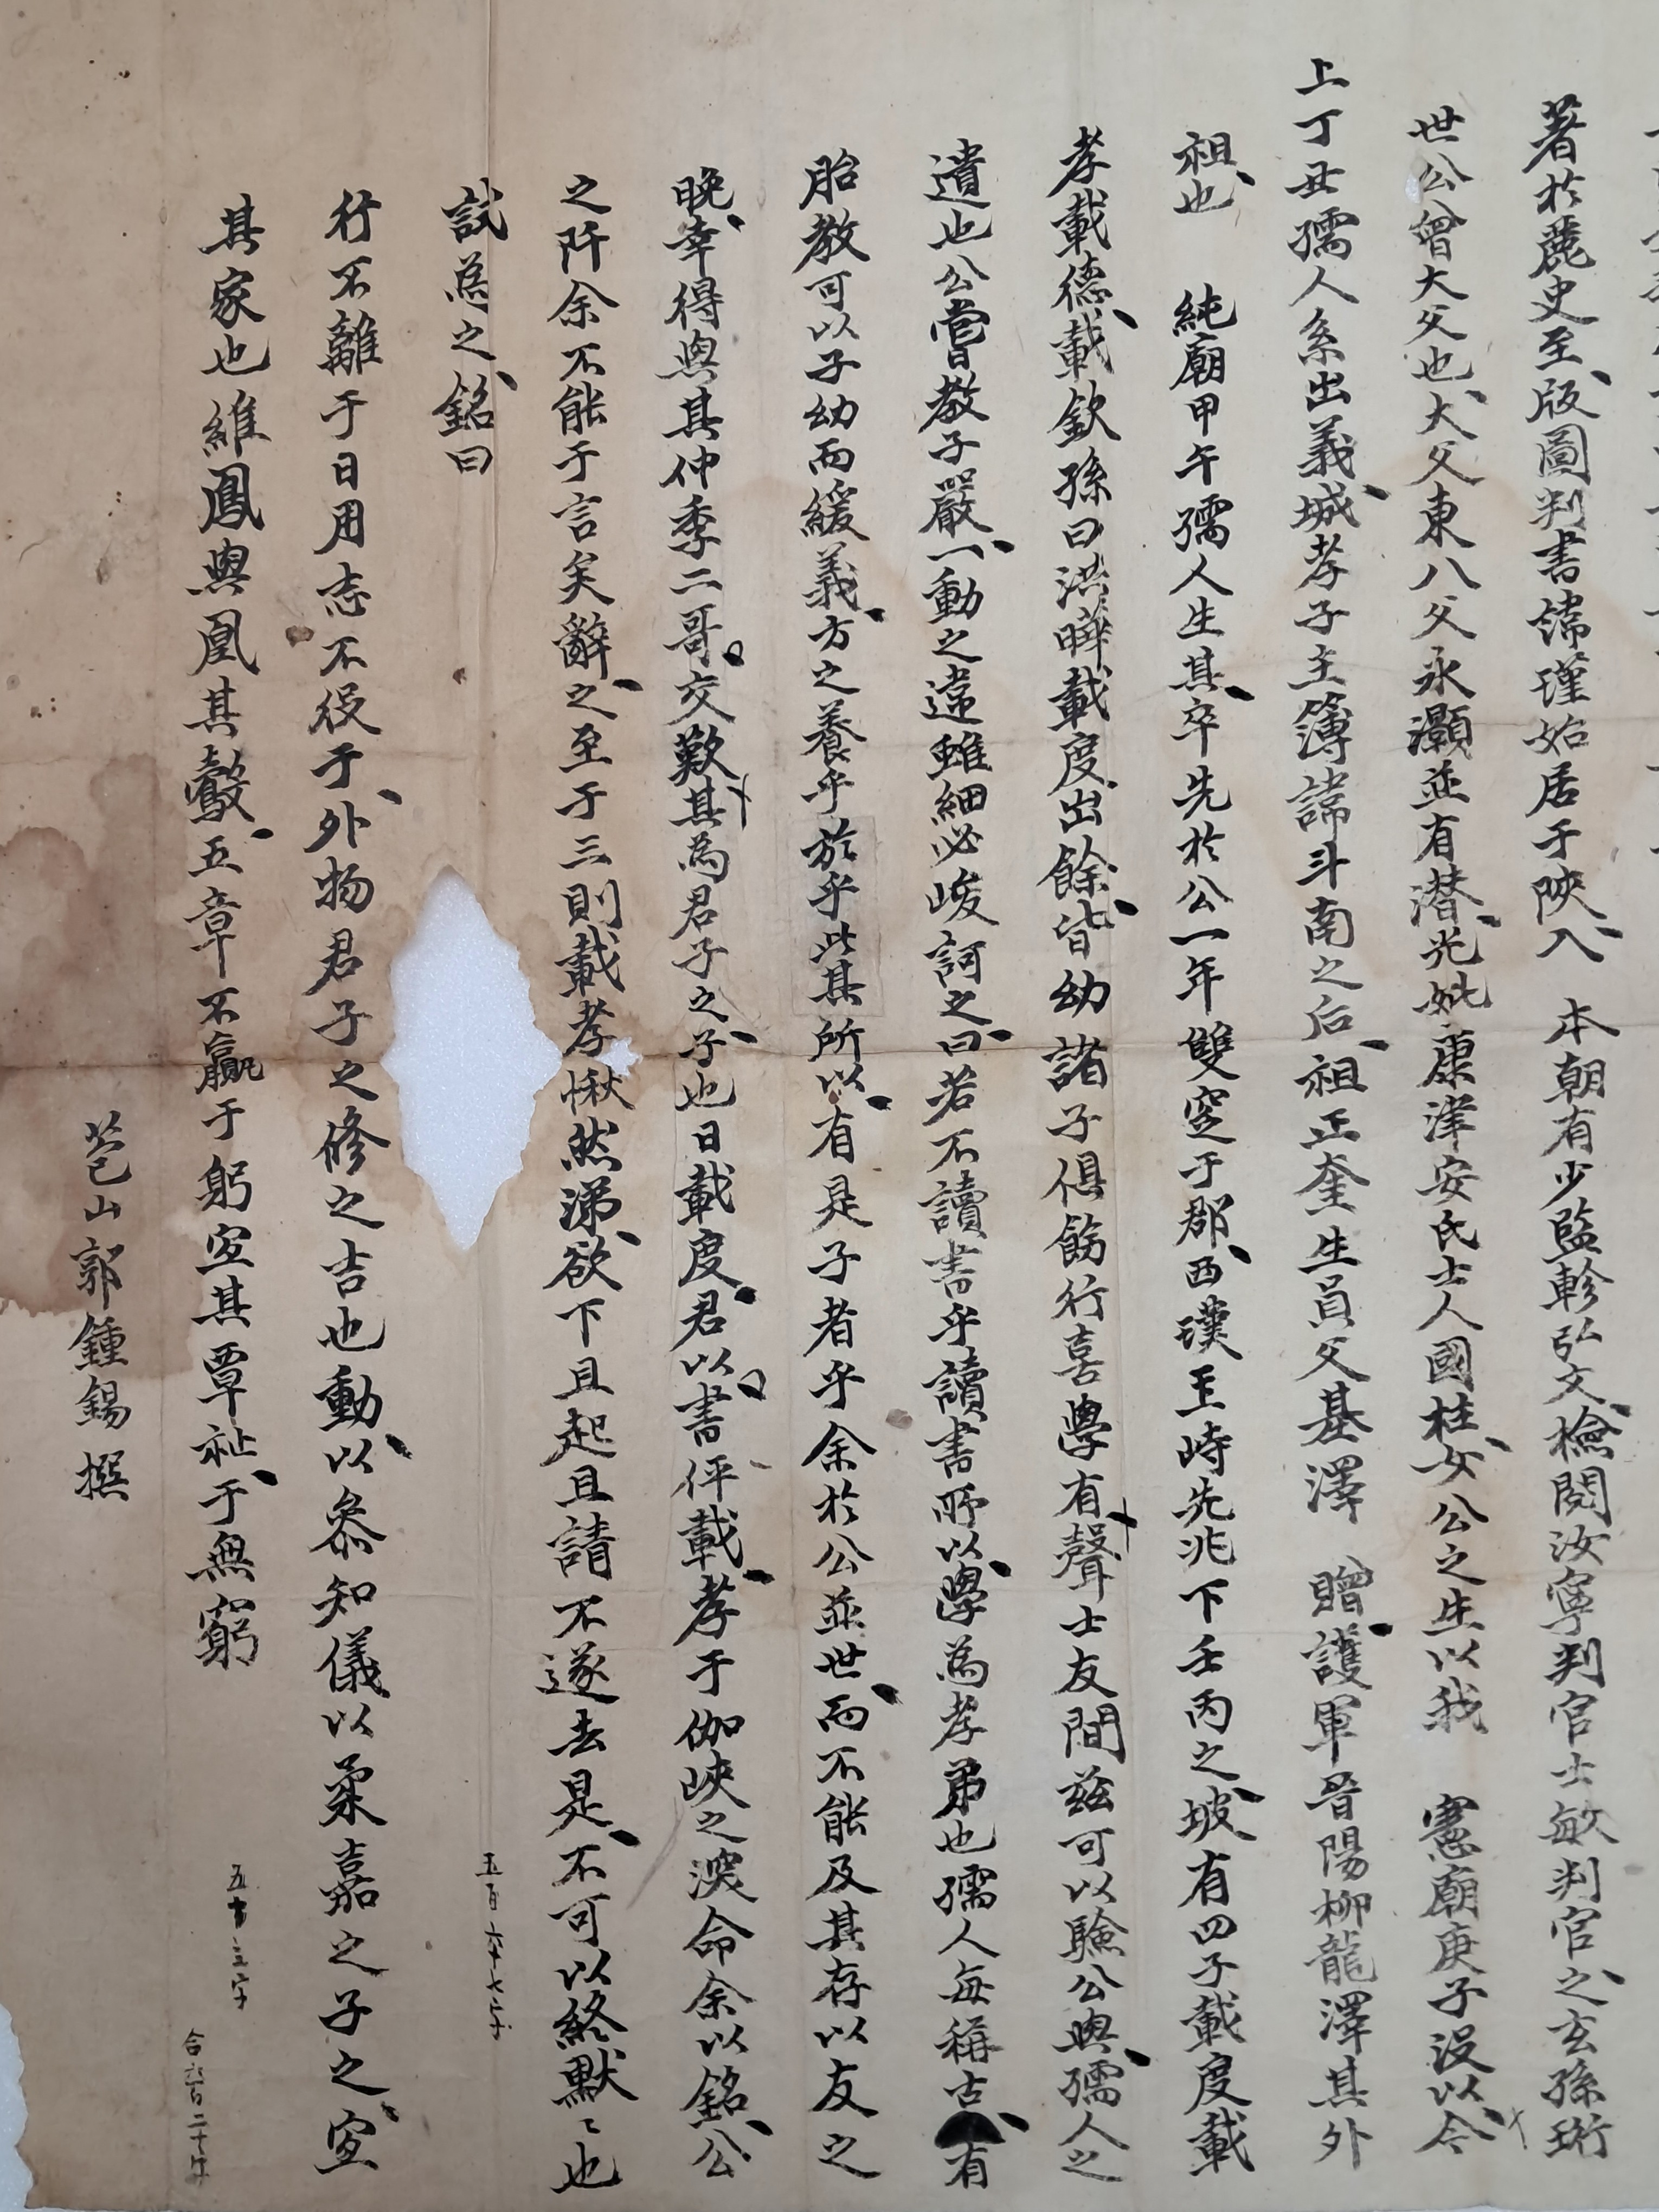 著於麗史至版圖判書諱瑾始居于陜入 本朝有少監軫弘文檢閱汝寧判官士敏判官之玄孫珩
世公曾大父也大父東八父永灝並有潛光妣康津安氏士人國桂女公之生以我 憲廟庚子沒以今
上丁丑孺人系出義城孝子主簿諱斗南之后祖正奎生員父基澤 贈護軍晉陽柳龍澤其外
祖也 純廟甲午孺人生其卒先於公一年雙窆于郡西璞王峙先兆下壬丙之坡有四子載度載
孝載德載欽孫曰洪曄載度出餘皆幼諸子俱飭行喜學有聲士友間玆可以驗公與孺人之
遺也公嘗教子嚴一動之違雖細必峻訶之曰若不讀書乎讀書所以學為孝弟也孺人每稱古有
胎教可以子幼而緩義方之養乎於乎此其所以有是子者乎余於公並世而不能及其存以友之
晚幸得與其仲季二哥交歎其為君子之子也日載度君以書伻載孝于伽峽之淚命余以銘公
之阡余不能于言矣辭之至于三則載孝愀然涕欲下且起且請不遂去是不可以終默〻也
試為之銘曰
行不離于日用志不役于外物君子之修之吉也動以叅知儀以柔嘉之子之宜
其家也維鳳與凰其鷇五章不贏于躬宜其覃祉于無窮
苞山郭鍾錫撰
五百六十七字
五十三字
合六百二十字